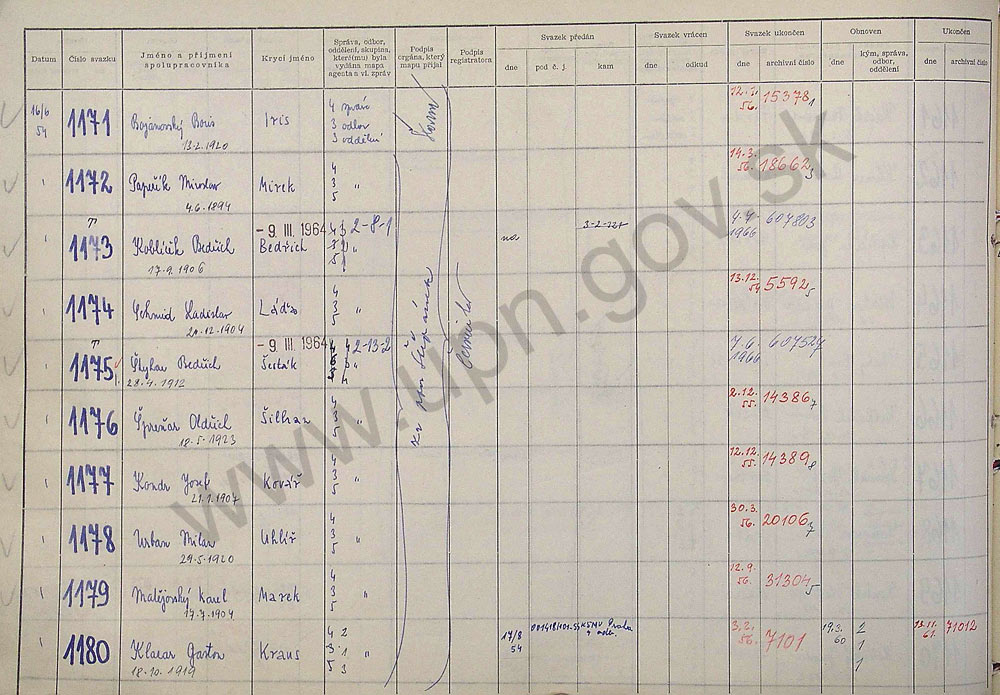 Datum
Číslo svazku
Jméno a příjmení
spolupracovníka
Krycí jméno
Správa, odbor,
oddělení, skupina,
které(mu) byla
vydána mapa
agenta a vl. zpráv
Podpis
orgána, který
mapu přijal
Podpis
registratora
Svazek předán
dne
pod č. j.
kam
Svazek vrácen
dne
odkud
Svazek ukončen
dne
archivní číslo
Obnoven
dne
kým, správa,
odbor,
oddělení
Ukončen
dne
archivní číslo
16/6
54
1171
Bojanovský Boris
13.2.1920
Iris
4 správa
3 odbor
3 oddělení
56.
15378
1
1172
Papeřík Miroslav
4.6.1894
Mirek
4
3
5
14.3.
56.
18662
1173
17.9.1906
- 9. III. 1964
Bedřich
2-8-1
na
1966
607803
1174
Schmid Ladislav
Láďa
4
3
5
13.12.
5592
5
1175
Bedřich
28.4.1912
- 9. III. 1964
Šesták
2-13-2
7.6.
1966
1176
Oldřich
18.5.1923
Šilhan
4
3
5
2.12.
55.
14386
7
1177
Josef
21.1.1907
Kovář
4
3
5
12.12.
55.
14389
8
1178
Urban Milan
29.5.1920
Uhlíř
4
3
5
30.3.
56.
20106
7
1179
Matějovský Karel
17.7.1904
Marek
4
3
5
12.9.
56.
31304
5
1180
Klacar Gaston
18.10.1919
Kraus
4 2
3 1
5 3
17/8
54
KSMV Praha
3.2.
56.
7101
19.3.
60
2
1
1
13.11.
61.
71012
www.upn.gov.sk